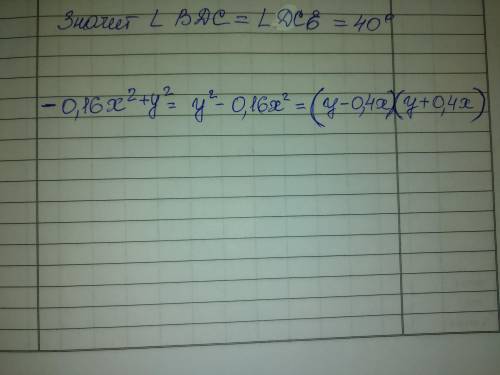 Значит ∠ BDC = ∠ DCE = 40°
-0,16x²+y² = y² - 0,16x² = (y-0,4x)(y+0,4x)